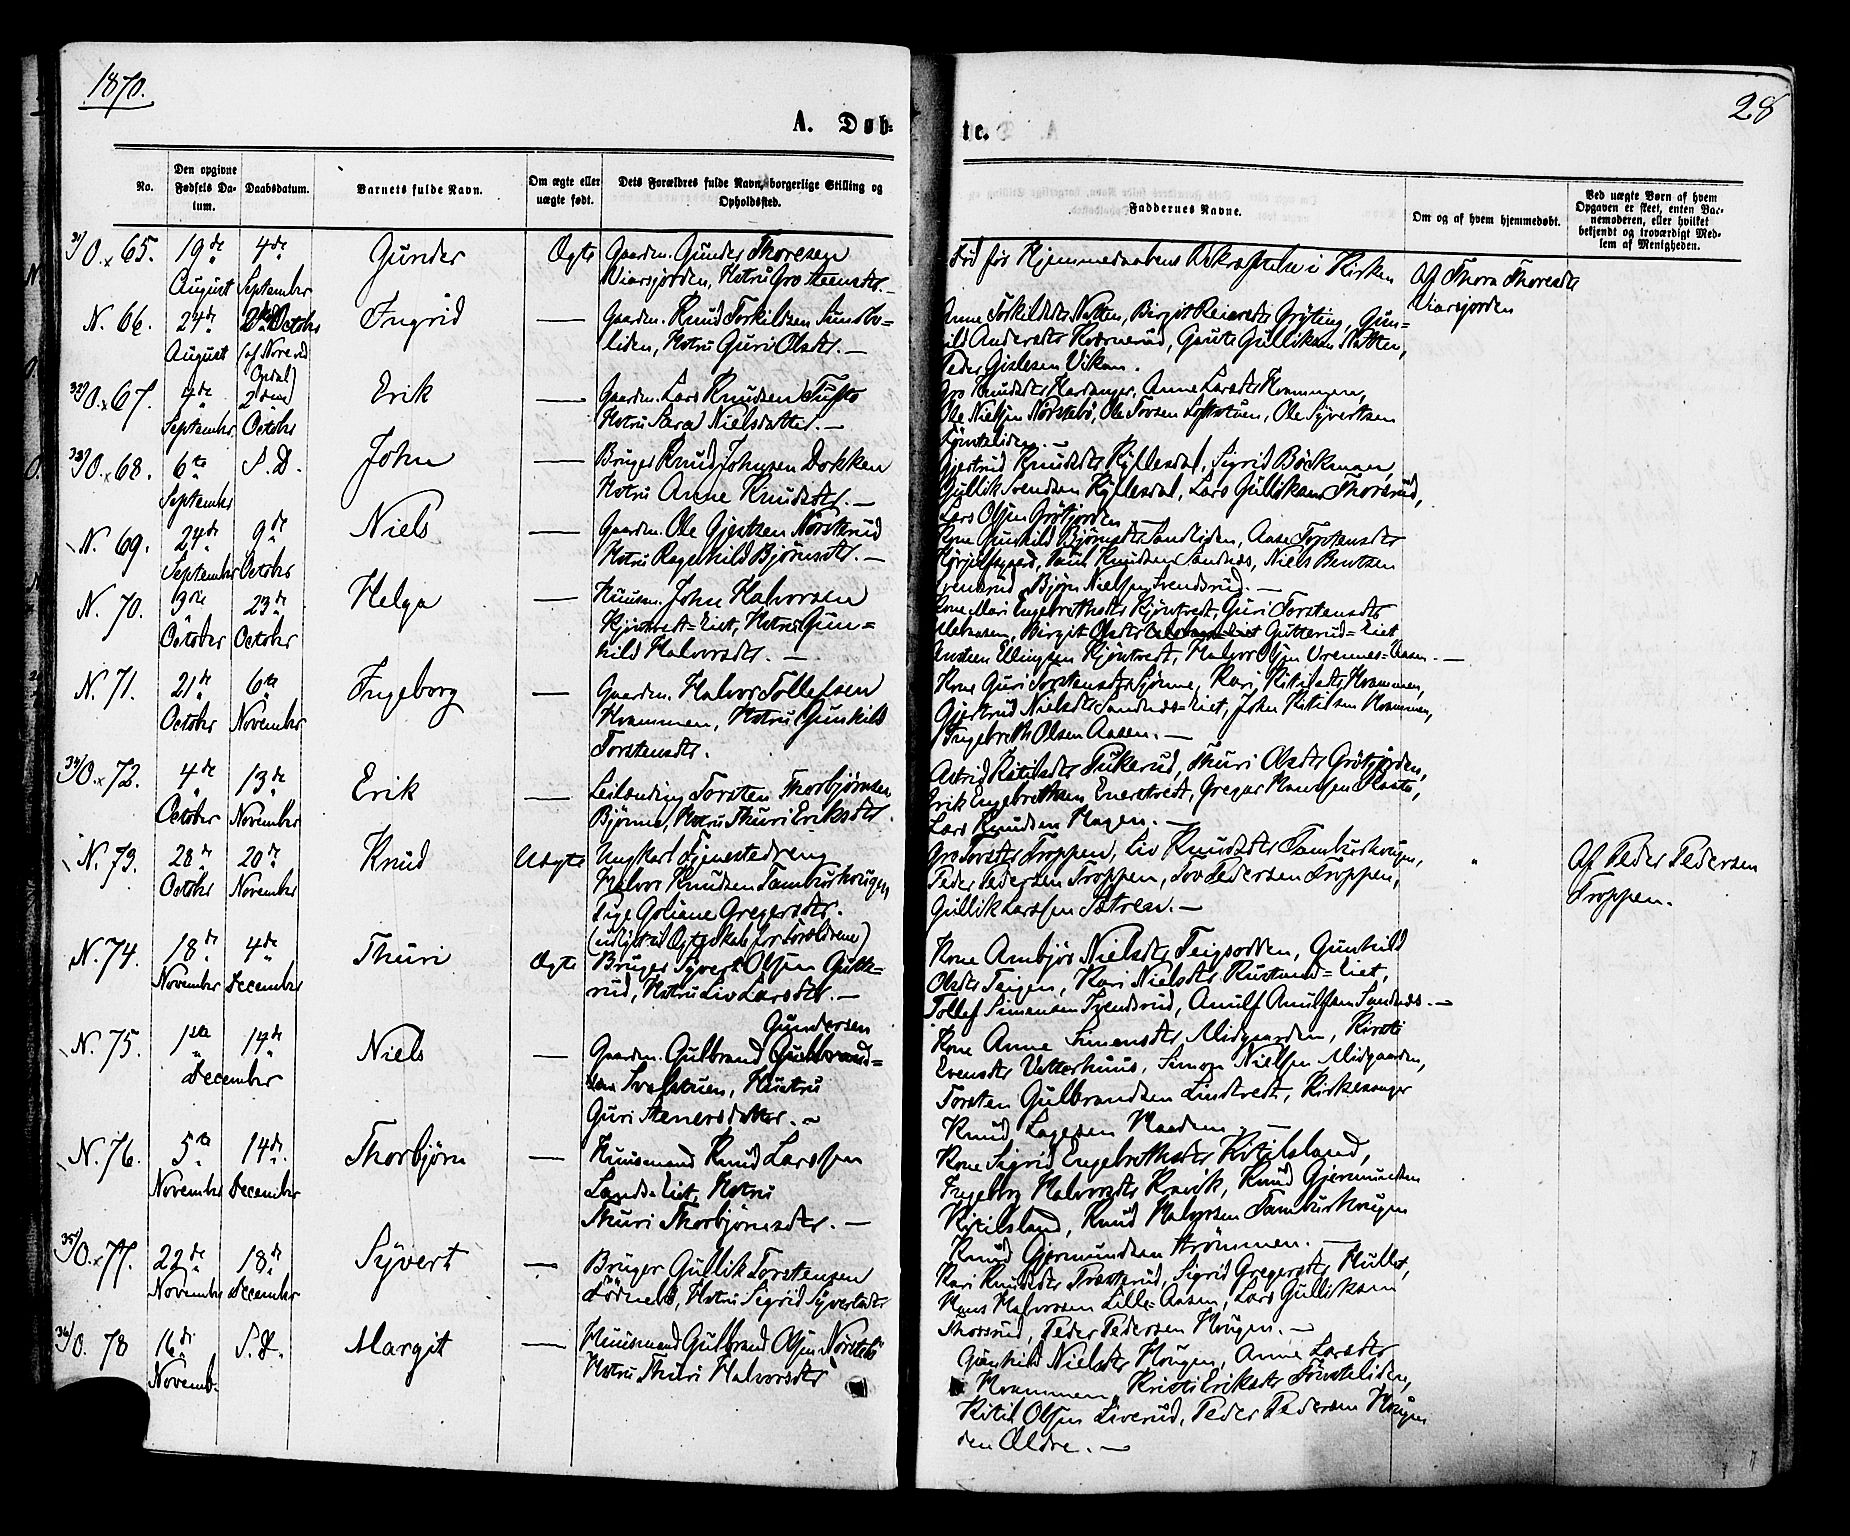 1870.
28
A. Døb-
te.
No.
Den opgivne
Fødsels Da-
tum.
Daabsdatum.
Barnets fulde Navn.
Om ægte eller
uægte født.
Dets Forældres fulde Navn, borgerlige Stilling og
Opholdssted.
Faddernes Navne.
Om og af hvem hjemmedøbt.
Ved uægte Børn af hvem
Opgaven er skeet, enten Bar-
nemoderen, eller hvilket
bekjendt og troværdigt Med-
lem af Menigheden.
31/O. x 65.
19de
August
4de
September
Gunder
Ægte
Gaardm. Gunder Thoresen
Viersjorden, Hstru Gro Steensdtr.
Død før Hjemmedaabens Bekræftelse i Kirken
Af Thora Thoresdtr
Viersjorden
N. 66.
24de
August
Octobr
(af Nore ved
Opdal)
Ingrid
—
Gaardm. Knud Torkildsen Sundbo-
liden, Hstru Guri Olsdtr. —
Anne Torkildsdtr Natten, Birgit Reiersdtr Gryting, Gun-
ild Andersdtr Kværnerud, Gaute Gulliksen Natten,
Peder Gislesen Viken.
32/O. x 67.
September
2den
Octobr
Erik
—
Gaardm. Lars Knudsen Tufto
Hstru Sara Nielsdatter. —
Gro Knudsdtr Hardanger, Anne Larsdtr Kvammen,
Ole Nielsen Nørstebø, Ole Torsen Loftstuen, Ole Syvertsen
Tønteliden. —
33/O. x 68.
6te
September
S. D.
John
—
Bruger Knud Johnsen Dokken
Hstru Anne Knudsdtr. —
Gjertrud Knudsdtr Kyllesdal, Sigrid Bøckman,
Gullik Svendsen Kyllesdal, Lars Gulliksen Thorsrud,
Lars Olsen Grøtjorden
N. 69.
24de
September
9de
Octobr
Niels
—
Gaardm. Ole Gjertsen Nørsterud
Hstru Ragnhild Bjørnsdtr. —
Kone Gunhild Bjørnsdtr Sandliden, Aase Torstensdtr
Knudsen Sandnes, Niels Bentsen
Svensrud, Bjørn Nielsen Svendsrud. —
N. 70.
9de
October
23de
October
Helga
—
Huusm. John Halvorsen
Kjøntvedt-Eiet, Hstru Gun-
hild Halvorsdtr. —
Kone Mari Engebrethsdtr Kjøntvedt, Guri Torstensdtr
Birgit Olsdtr Gutterud-Eiet
Ansteen Ellingsen Kjøntvedt, Halvor Olsen Vrennes-Aasen. —
N. 71.
21de
October
6te
November
Ingeborg
—
Gaardm. Halvor Tollefsen
Kvammen, Hstru Gunhild
Torstensdtr.
Kone Guri Torstensdtr Sjønne, Kari Kitilsdtr Kvammen,
Gjertrud Nielsdtr Sandnes-Eiet, John Kitilsen Kvammen,
Engebreth Olsen Aasen. —
34/O. x 72.
4de
October
13de
November
Erik
—
Leilending Torsten Thorbjørnsen
Bjønne, Hstru Thuri Eriksdtr.
Astrid Kitilsdtr Tukerud, Thuri Olsdtr Grøtjorden,
Erik Engebrethsen Enerstvedt, Gregar Hansen Kaata,
Lars Knudsen Hagen. —
N. 73.
28de
Octobr
20de
November
Knud
Uægte
Ungkarl Tjenestedreng
Halvor Knudsen Tamburhougen,
Pige Goliane Gregersdtr.
(udlyst til Ægteskab for Forældrene)
Gro Torsdtr Troppen, Liv Knudsdtr Tamburhougen,
Peder Pedersen Troppen, Tov Pedersen Troppen,
Gullik Larssen Sætren. —
"
Af Peder Pedersen
Troppen.
N. 74.
18de
November
4de
December
Thuri
Ægte
Bruger Syvert Olsen Gutte-
rud, Hstru Liv Larsdtr. —
Kone Ambjør Nielsdtr Teigsodden, Gunhild
Olsdtr Teigen, Kari Nielsdtr Rustand-Eiet,
Tollef Simensen Svendsrud, Arnulf Arnulfsen Sandnes. —
N. 75.
1ste
14de
December
Niels
—
Gundersen
Gaardm. Gulbrand Gulbrand-
sen Svelstuen, Hustru
Guri Steensdatter. —
Kone Anne Simensdtr Midgaarden, Kirsti
Evensdtr Vetterhuus, Simon Nielsen Midgaarden,
Torsten Gulbrandsen Lindtvedt, Kirkesanger
Knud Lagesen Haaden. —
N. 76.
5te
November
14de.
December
Thorbjørn
—
Huusmand Knud Larssen
Lands-Eiet, Hstru
Thuri Thorbjørnsdtr. —
Kone Sigrid Engebrethsdtr Kitilsland,
Ingeborg Halvorsdtr Kravik, Knud Gjermundsen
Kitilsland, Knud Halvorsen Tamburhougen
Knud Gjermundsen Strømmen. —
35/O. x 77.
22de
November
18de
December
Syvert
—
Bruger Gullik Torstensen
Hstru Sigrid Syvertsdtr
Kari Knudsdtr Træsterud, Sigrid Gregersdtr Hullet,
Hans Halvorsen Lille-Aasen, Lars Gulliksen
Thorsrud, Peder Pedersen Hougen. —
36/O. 78
16de
Novemb.
S. D.
Margit
—
Huusmand Gulbrand Olsen Nørstebø
Hstru Thuri Halvorsdtr
Gunhild Nielsdtr Hougen, Anne Larsdtr
Kvammen, Kristi Eriksdtr Tønteliden,
Kitil Olsen Liverud, Peder Pedersen Hougen
den Ældre. —